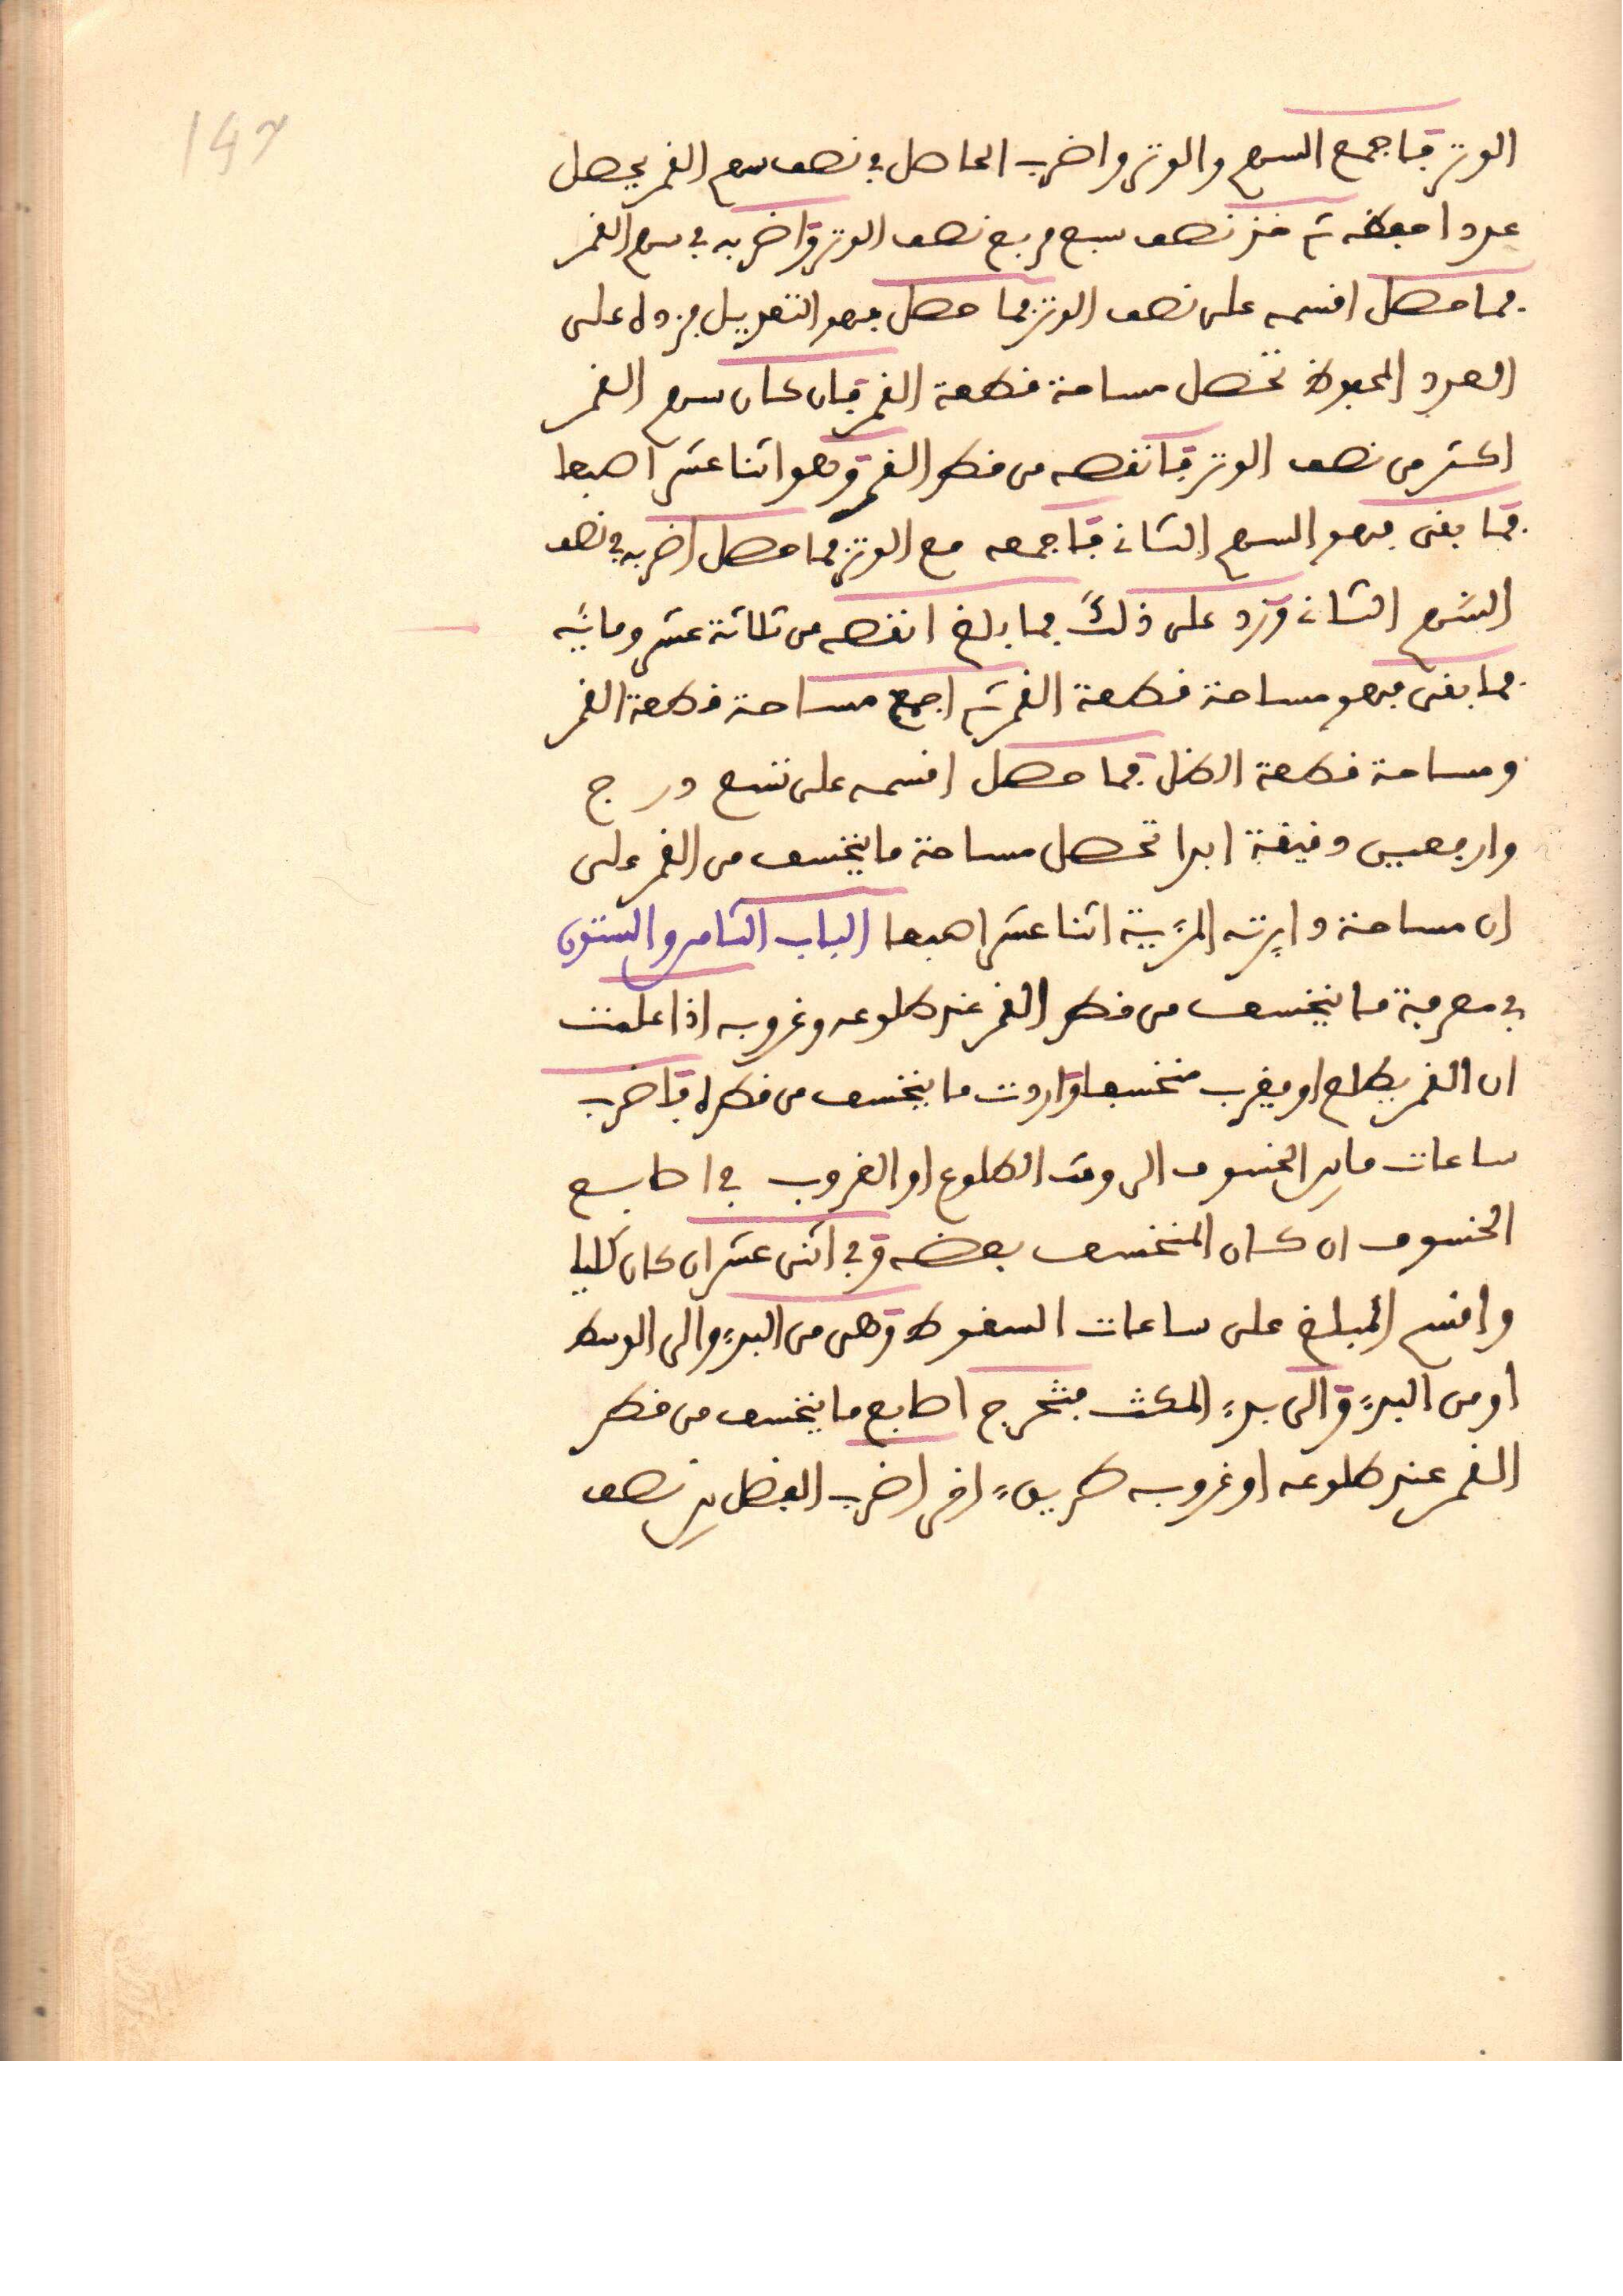 147
الوتر فاجمع السهم والوتر واضرب الحاصل في نصف سهم القمر يحصل
عددا احفظه ثم خذ نصف سبع مربع نصف الوتر واضربه في سهم القمر
فما حصل اقسمه على نصف الوتر فما حصل فهو التعديل فزده على
العدد المحفوظ تحصل مساحة قطعة القمر فان كان سهم القمر
اكثر من نصف الوتر فانقصه من قطر القمر وهو اثنا عشر اصبعا
فما بقى فهو السهم الثانى فاجمعه مع الوتر فما حصل اضربه في نصف
السهم الثانى وزد على ذلك فما بلغ انقصه من ثلاثة عشر ومائه
فما بقى فهو مساحة قطعة القمر ثم اجمع مساحة قطعة القمر
ومساحة قطعة الظل فما حصل اقسمه على تسع درج
واربعين دقيقة ابدا تحصل مساحة ما ينخسف من القمر على
ان مساحة دايرته المريية اثنا عشر اصبعا الباب الثامن والستون
في معرفة ما ينخسف من قطر القمر عند طلوعه وغروبه اذا علمت
ان القمر يطلع او يغرب منخسفا واردت ما ينخسف من قطره فاضرب
ساعات ما بين الخسوف الى وقت الطلوع او الغروب في اصابع
الخسوف ان كان المنخسف بعضه وفي اثنى عشر ان كان كليا
واقسم المبلغ على ساعات السقوط وهى من البدء والى الوسط
او من البدء والى بدء المكث فتخرج اصابع ما ينخسف من قطر
القمر عند طلوعه او غروبه طريق اخر اضرب الفضل بين نصف